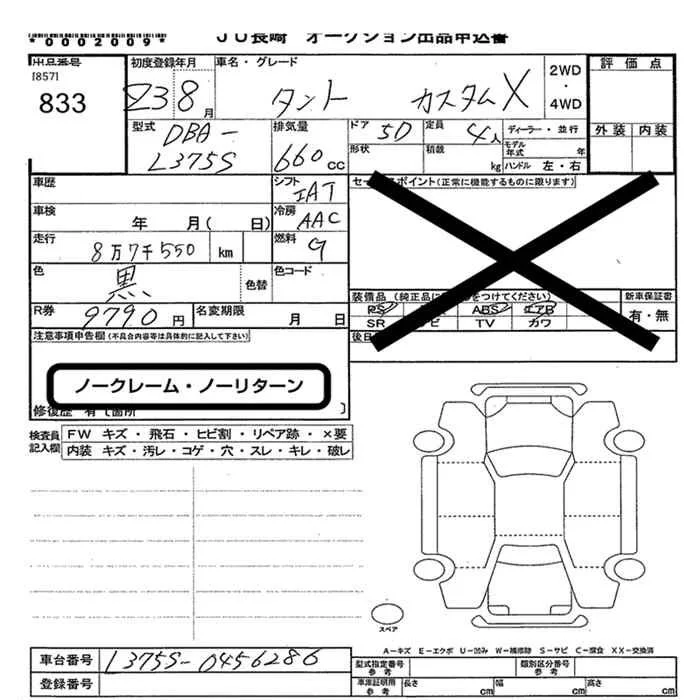 *0002009*
JU長崎 オークション出品申込書
出品番号
[857]
833
初度登録年月
23 8 月
車名・グレード
タント カスタムX
2WD
・
4WD
評価点
外装 内装
型式
DBA-
L375S
排気量
660 cc
ドア 5D
定員 4人
形状
積載 kg
ディーラー・並行
モデル年式 年
ハンドル 左・右
車歴
シフト IAT
セールスポイント(正常に機能するものに限ります)
車検 年 月( 日)
冷房 AAC
走行 8万7千550 km
燃料 G
色 黒 色替
色コード
R券 9790 円
名変期限 月 日
装備品
つけてください)
PS ABS エアB
SR TV カワ
新車保証書
有・無
注意事項申告欄(不具合内容等は具体的に記入して下さい)
ノークレーム・ノーリターン
修復歴 有〔箇所 〕
検査員
記入欄
FW キズ・飛石・ヒビ割・リペア跡・×要
内装 キズ・汚レ・コゲ・穴・スレ・キレ・破レ
スペア
A-キズ E-エクボ U-凹み W-補修跡 S-サビ C-腐食 XX-交換済
車台番号 L375S-0456286
登録番号
型式指定番号
参考
類別区分番号
参考
車庫証明用
参考
長さ cm
幅 cm
高さ cm